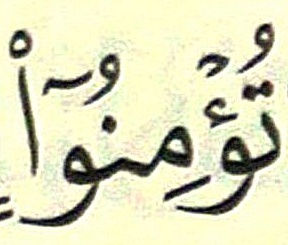 تُؤْمِنُوٓا۟